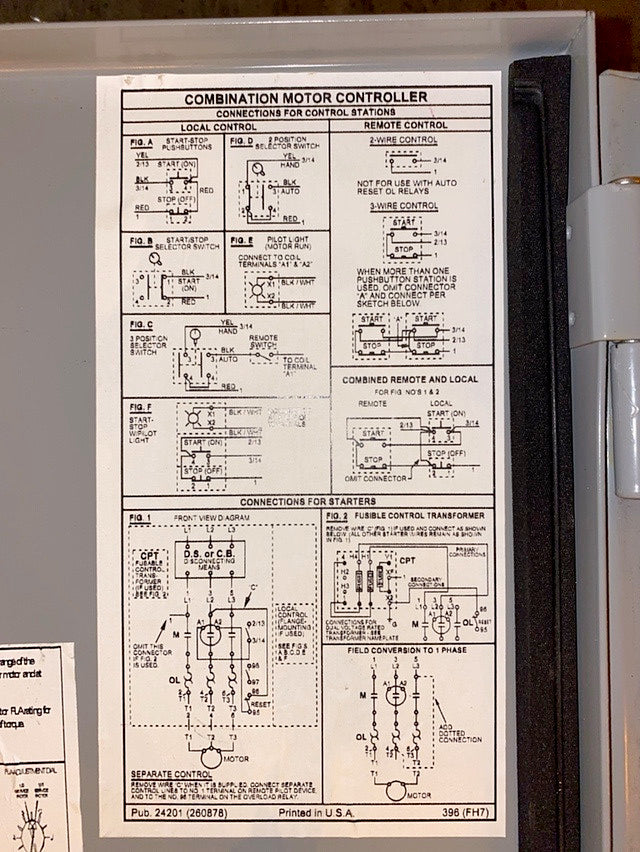 COMBINATION MOTOR CONTROLLER
CONNECTIONS FOR CONTROL STATIONS
LOCAL CONTROL
FIG. A
START-STOP
PUSHBUTTONS
YEL
2/13
START (ON)
BLK
3/14
RED
STOP (OFF)
RED
1
FIG. D
2 POSITION
SELECTOR SWITCH
YEL
HAND
3/14
BLK
3
AUTO
RED
1
FIG. B
START/STOP
SELECTOR SWITCH
BLK
3/14
START
(ON)
1
RED
FIG. E
PILOT LIGHT
(MOTOR RUN)
CONNECT TO COIL
TERMINALS "A1" & "A2"
X1
BLK / WHT
X2
BLK / WHT
FIG. C
3 POSITION
SELECTOR
SWITCH
YEL
HAND
3/14
BLK
3
AUTO
REMOTE
SWITCH
TO COIL
TERMINAL
"A1"
RED
1
FIG. F
START-
STOP
W/PILOT
LIGHT
X1
BLK / WHT
X2
BLK / WHT
START (ON)
2/13
3/14
STOP (OFF)
1
REMOTE CONTROL
2-WIRE CONTROL
3/14
1
NOT FOR USE WITH AUTO
RESET OL RELAYS
3-WIRE CONTROL
START
3/14
2/13
STOP
1
WHEN MORE THAN ONE
PUSHBUTTON STATION IS
USED, OMIT CONNECTOR
"A" AND CONNECT PER
SKETCH BELOW.
START
"A"
START
3/14
2/13
STOP
STOP
1
COMBINED REMOTE AND LOCAL
FOR FIG. NO'S 1 & 2
REMOTE
LOCAL
START (ON)
2/13
3/14
START
STOP
STOP (OFF)
1
OMIT CONNECTOR
CONNECTIONS FOR STARTERS
FIG. 1
FRONT VIEW DIAGRAM
L1
L2
L3
D.S. or C.B.
DISCONNECTING
MEANS
CPT
FUSABLE
CONTROL
TRANS-
FORMER
(IF USED)
(SEE FIG. 2)
L1
L2
L3
"C"
M
A1
A2
2/13
3/14
LOCAL
CONTROL
(FLANGE-
MOUNTING)
(IF USED)
SEE FIG'S
A, B, C, D, E
& F
OMIT THIS
CONNECTOR
IF FIG. 2
IS USED.
OL
96
97
98
RESET
95
T1
T2
T3
T1
T2
T3
MOTOR
SEPARATE CONTROL
REMOVE WIRE "C" WHEN IT IS SUPPLIED. CONNECT SEPARATE
CONTROL LINES TO NO. 1 TERMINAL ON REMOTE PILOT DEVICE
AND TO THE NO. 96 TERMINAL ON THE OVERLOAD RELAY.
FIG. 2
FUSIBLE CONTROL TRANSFORMER
REMOVE WIRE "C" (FIG. 1) IF USED AND CONNECT AS SHOWN
BELOW. (ALL OTHER STARTER WIRES REMAIN AS SHOWN
IN FIG. 1)
H4
H1
H2
H3
CPT
PRIMARY
CONNECTIONS
SECONDARY
CONNECTIONS
G
CONNECTIONS FOR
DUAL VOLTAGE RATED
TRANSFORMER - SEE
TRANSFORMER NAMEPLATE
L1
L2
L3
M
A1
A2
OL
96
RESET
95
FIELD CONVERSION TO 1 PHASE
M
A1
A2
OL
T1
T2
T1
T2
ADD
DOTTED
CONNECTION
MOTOR
Pub. 24201 (260876)
Printed in U.S.A.
396 (FH7)